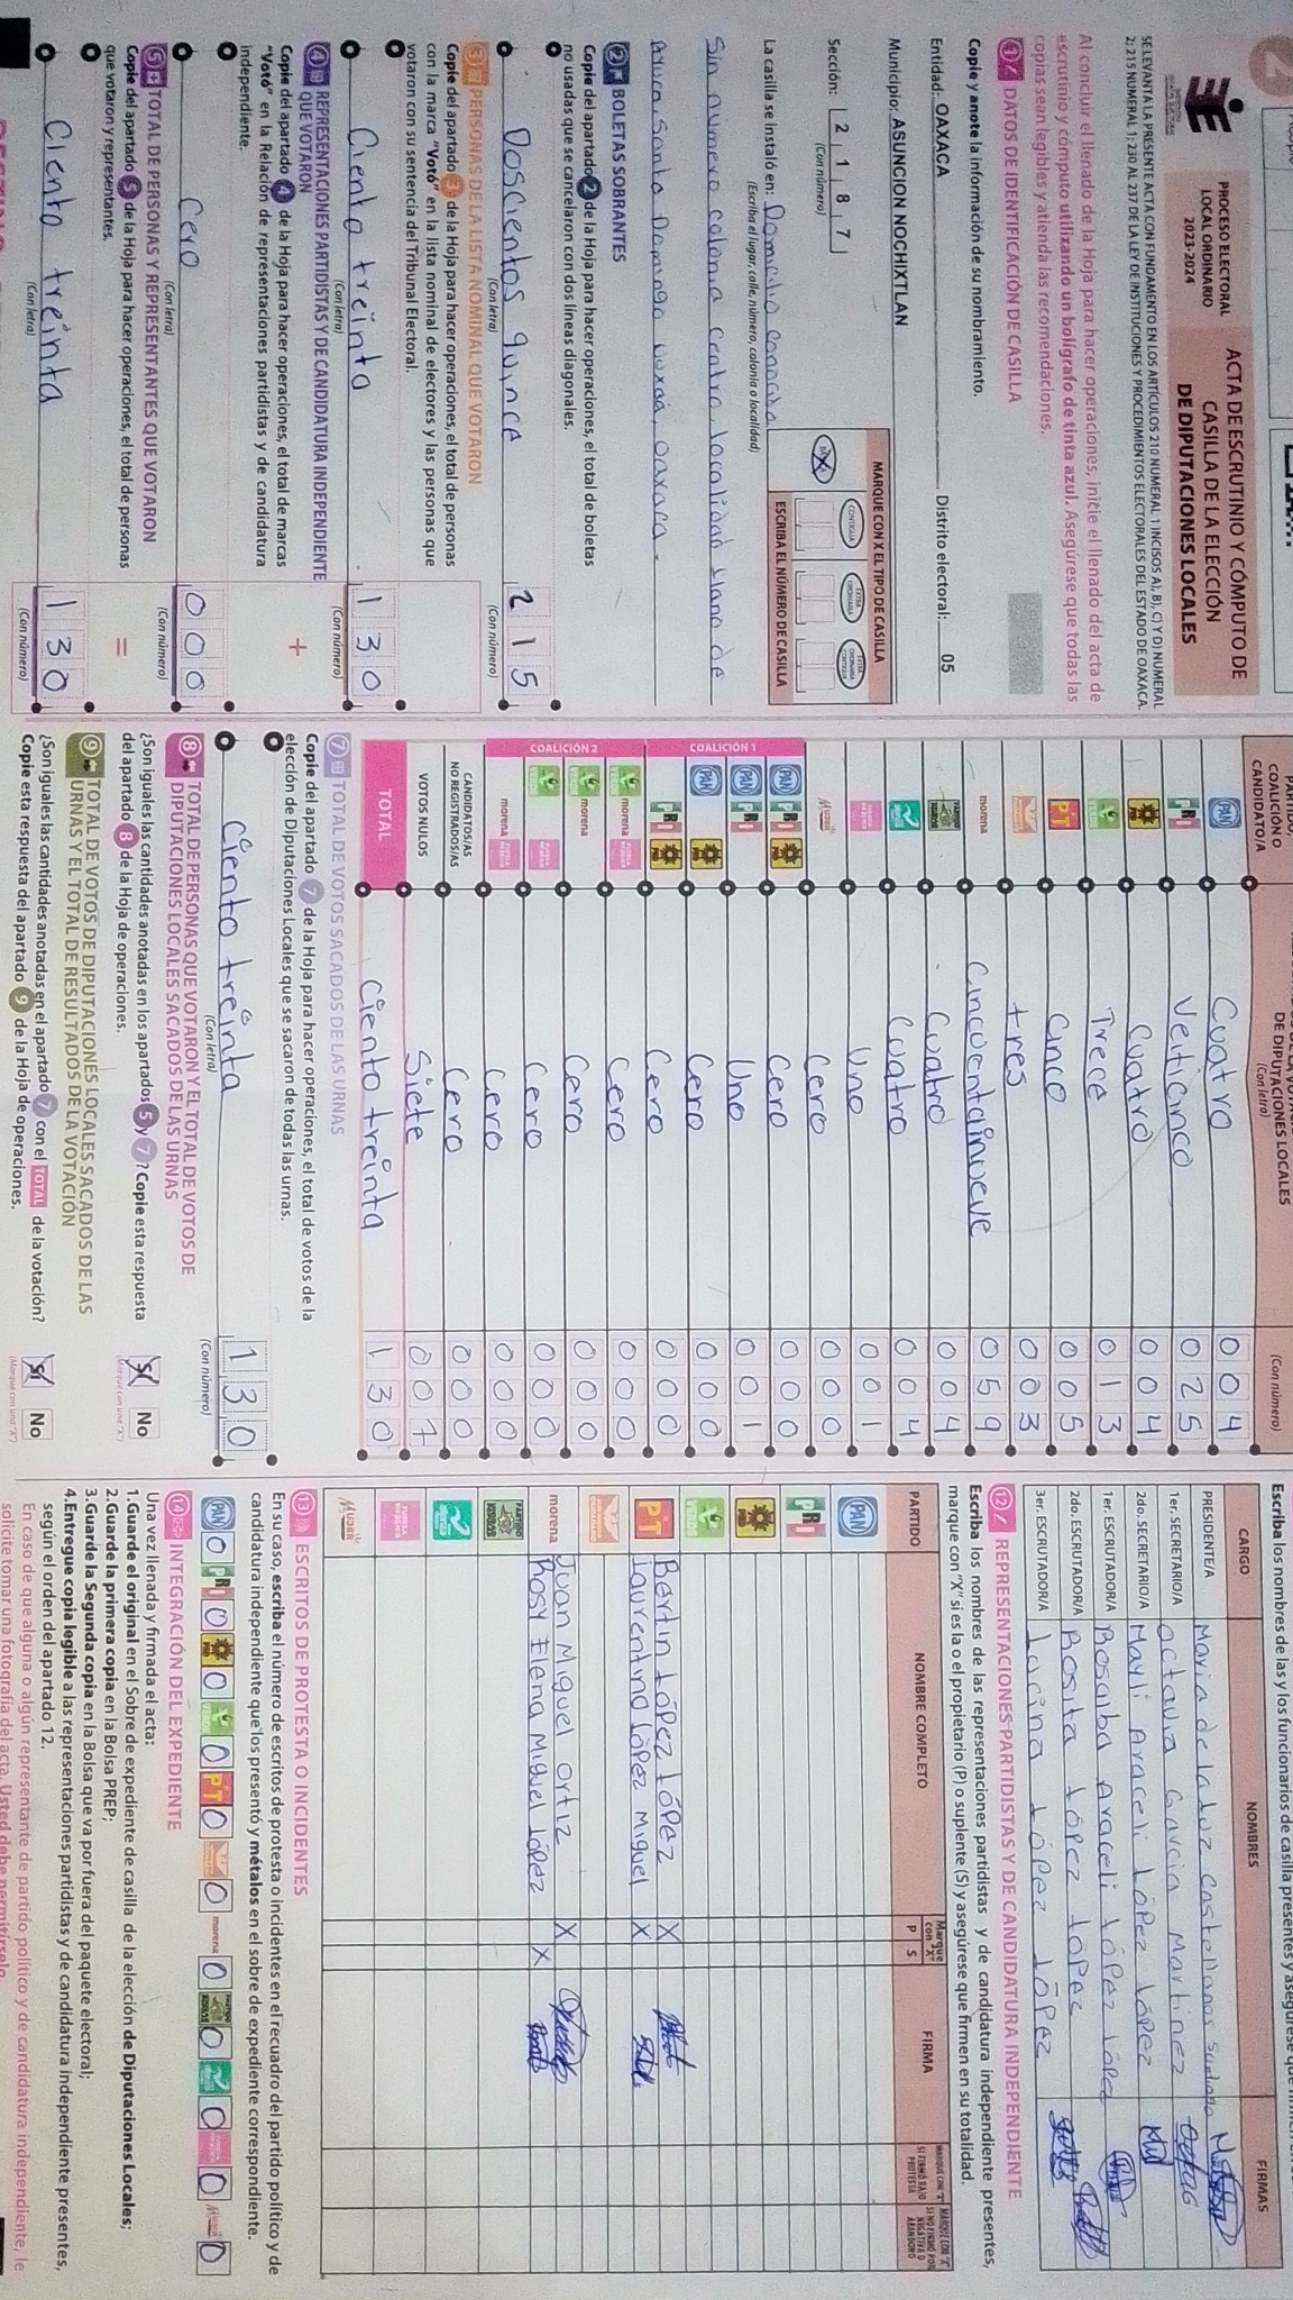 2
PROCESO ELECTORAL
LOCAL ORDINARIO
2023-2024
ACTA DE ESCRUTINIO Y CÓMPUTO DE
CASILLA DE LA ELECCIÓN
DE DIPUTACIONES LOCALES
SE LEVANTA LA PRESENTE ACTA CON FUNDAMENTO EN LOS ARTÍCULOS 210 NUMERAL 1 INCISOS A), B), C) Y D) NUMERAL
2; 215 NUMERAL 1; 230 AL 237 DE LA LEY DE INSTITUCIONES Y PROCEDIMIENTOS ELECTORALES DEL ESTADO DE OAXACA.
Al concluir el llenado de la Hoja para hacer operaciones, inicie el llenado del acta de
escrutinio y cómputo utilizando un bolígrafo de tinta azul. Asegúrese que todas las
copias sean legibles y atienda las recomendaciones.
1 DATOS DE IDENTIFICACIÓN DE CASILLA
Copie y anote la información de su nombramiento.
Entidad: OAXACA Distrito electoral: 05
Municipio: ASUNCION NOCHIXTLAN
Sección: 2 1 8 7
(Con número)
MARQUE CON X EL TIPO DE CASILLA
CONTIGUA
ESCRIBA EL NÚMERO DE CASILLA
La casilla se instaló en: Domicilio conocido
(Escriba el lugar, calle, número, colonia o localidad)
Sin numero colonia centro, localidad llano de
Santo Domingo Oaxaca.
2 BOLETAS SOBRANTES
Copie del apartado 2 de la Hoja para hacer operaciones, el total de boletas
no usadas que se cancelaron con dos líneas diagonales.
Doscientos quince 2 1 5
(Con letra) (Con número)
3 PERSONAS DE LA LISTA NOMINAL QUE VOTARON
Copie del apartado 3 de la Hoja para hacer operaciones, el total de personas
con la marca "Votó" en la lista nominal de electores y las personas que
votaron con su sentencia del Tribunal Electoral.
Ciento treinta 1 3 0
(Con letra) (Con número)
4 REPRESENTACIONES PARTIDISTAS Y DE CANDIDATURA INDEPENDIENTE
QUE VOTARON
Copie del apartado 4 de la Hoja para hacer operaciones, el total de marcas
"Votó" en la Relación de representaciones partidistas y de candidatura
independiente.
+
Cero 0 0 0
(Con letra) (Con número)
5 TOTAL DE PERSONAS Y REPRESENTANTES QUE VOTARON
Copie del apartado 5 de la Hoja para hacer operaciones, el total de personas
que votaron y representantes.
=
Ciento treinta 1 3 0
(Con letra) (Con número)
PARTIDO,
COALICIÓN O
CANDIDATO/A
DE DIPUTACIONES LOCALES
(Con letra)
(Con número)
PAN Cuatro 0 0 4
PRI Veiticinco 0 2 5
PRD Cuatro 0 0 4
VERDE Trece 0 1 3
PT Cinco 0 0 5
tres 0 0 3
morena Cincuentainueve 0 5 9
Cuatro 0 0 4
Cuatro 0 0 4
Uno 0 0 1
MUJER Cero 0 0 0
COALICIÓN 1
PAN PRI PRD Cero 0 0 0
PAN PRI Uno 0 0 1
PAN PRD Cero 0 0 0
PRI PRD Cero 0 0 0
COALICIÓN 2
VERDE morena Cero 0 0 0
VERDE morena Cero 0 0 0
VERDE Cero 0 0 0
morena Cero 0 0 0
CANDIDATOS/AS
NO REGISTRADOS/AS
Cero 0 0 0
VOTOS NULOS Siete 0 0 7
TOTAL Ciento treinta 1 3 0
7 TOTAL DE VOTOS SACADOS DE LAS URNAS
Copie del apartado 7 de la Hoja para hacer operaciones, el total de votos de la
elección de Diputaciones Locales que se sacaron de todas las urnas.
Ciento treinta 1 3 0
(Con letra) (Con número)
8 TOTAL DE PERSONAS QUE VOTARON Y EL TOTAL DE VOTOS DE
DIPUTACIONES LOCALES SACADOS DE LAS URNAS
¿Son iguales las cantidades anotadas en los apartados 5 y 7? Copie esta respuesta
del apartado 8 de la Hoja de operaciones.
Sí No
(Marque con una "X")
9 TOTAL DE VOTOS DE DIPUTACIONES LOCALES SACADOS DE LAS
URNAS Y EL TOTAL DE RESULTADOS DE LA VOTACIÓN
¿Son iguales las cantidades anotadas en el apartado 7 con el TOTAL de la votación?
Copie esta respuesta del apartado 9 de la Hoja de operaciones.
Sí No
(Marque con una "X")
Escriba los nombres de las y los funcionarios de casilla presentes y asegúrese que
CARGO NOMBRES FIRMAS
PRESIDENTE/A Maria de la luz Castellanos Santiago
1er. SECRETARIO/A Octavia Garcia Martinez
2do. SECRETARIO/A Mayli Araceli López López
1er. ESCRUTADOR/A Rosalba Araceli López López
2do. ESCRUTADOR/A Rosita López López
3er. ESCRUTADOR/A Lucina López López
12 REPRESENTACIONES PARTIDISTAS Y DE CANDIDATURA INDEPENDIENTE
Escriba los nombres de las representaciones partidistas y de candidatura independiente presentes,
marque con "X" si es la o el propietario (P) o suplente (S) y asegúrese que firmen en su totalidad.
PARTIDO NOMBRE COMPLETO Marque con "X" P S FIRMA
PAN
PRI
PRD
VERDE
PT Bertin López López X
Laurentino López Miguel X
morena Juan Miguel Ortiz X
Rosy Elena Miguel López X
MUJER
13 ESCRITOS DE PROTESTA O INCIDENTES
En su caso, escriba el número de escritos de protesta o incidentes en el recuadro del partido político y de
candidatura independiente que los presentó y métalos en el sobre de expediente correspondiente.
PAN 0 PRI 0 PRD 0 VERDE 0 PT 0 0 morena 0 0 0 0 MUJER 0
14 INTEGRACIÓN DEL EXPEDIENTE
Una vez llenada y firmada el acta:
1.Guarde el original en el Sobre de expediente de casilla de la elección de Diputaciones Locales;
2.Guarde la primera copia en la Bolsa PREP;
3.Guarde la Segunda copia en la Bolsa que va por fuera del paquete electoral;
4.Entregue copia legible a las representaciones partidistas y de candidatura independiente presentes,
según el orden del apartado 12.
En caso de que alguna o algún representante de partido político y de candidatura independiente, le
solicite tomar una fotografía del acta. Usted debe permitírselo